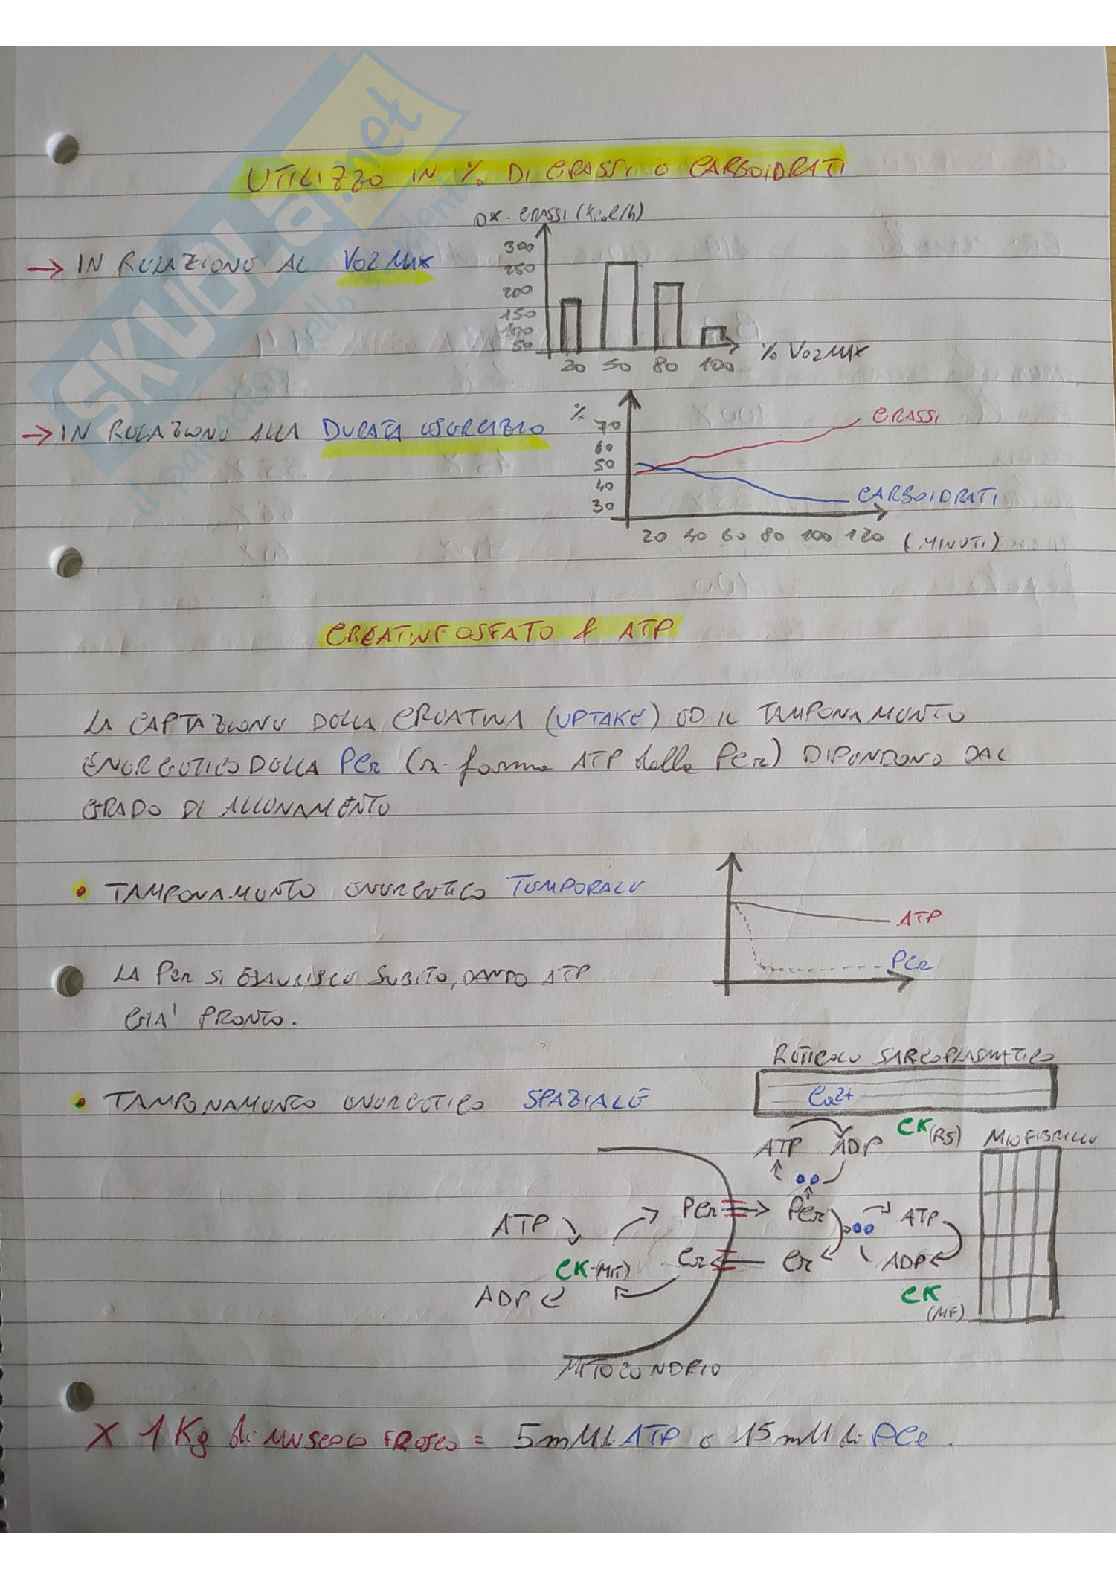 UTILIZZO IN % DI GRASSI O CARBOIDRATI
OX. GRASSI (Kcal/h)
→ IN RELAZIONE AL VO2 MAX
300
250
200
150
100
50
20 50 80 100
% VO2 MAX
→ IN RELAZIONE ALLA DURATA ESERCIZIO
%
70
60
50
40
30
GRASSI
CARBOIDRATI
20 40 60 80 100 120 (MINUTI)
CREATINFOSFATO & ATP
LA CAPTAZIONE DELLA CREATINA (UPTAKE) ED IL TAMPONAMENTO
ENERGETICO DELLA PCr (ri-forma ATP dalla PCr) DIPENDONO DAL
GRADO DI ALLENAMENTO
• TAMPONAMENTO ENERGETICO TEMPORALE
ATP
PCr
LA PCr SI ESAURISCE SUBITO, DANDO ATP
GIA' PRONTO.
RETICOLO SARCOPLASMATICO
• TAMPONAMENTO ENERGETICO SPAZIALE
Ca2+
CK (RS)
MIOFIBRILLE
ATP ADP
PCr → PCr
ATP
ATP
CK-(MIT)
Cr Cr
ADP
ADP
CK
(MF)
MITOCONDRIO
X 1 Kg di MUSCOLO FRESCO = 5 mM di ATP e 15 mM di PCr.
SKUOLA.net